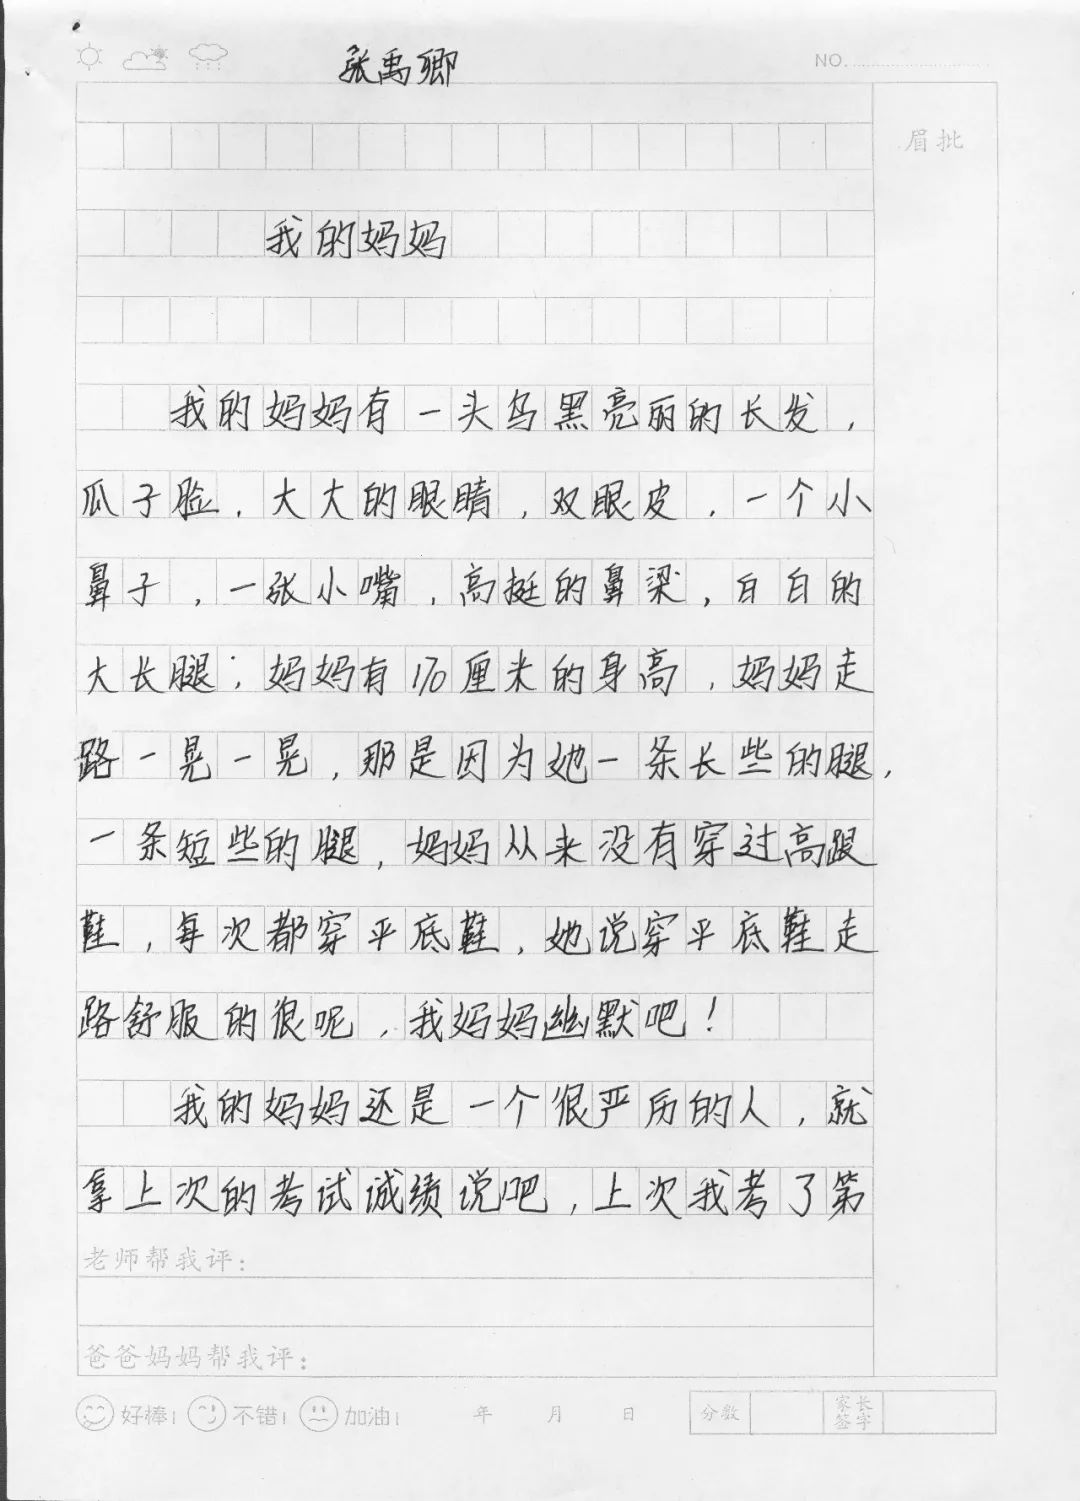 张禹卿
NO.
眉批
我的妈妈
我的妈妈有一头乌黑亮丽的长发，
瓜子脸，大大的眼睛，双眼皮，一个小
鼻子，一张小嘴，高挺的鼻梁，白白的
大长腿；妈妈有170厘米的身高，妈妈走
路一晃一晃，那是因为她一条长些的腿，
一条短些的腿，妈妈从来没有穿过高跟
鞋，每次都穿平底鞋，她说穿平底鞋走
路舒服的很呢，我妈妈幽默吧！
我的妈妈还是一个很严厉的人，就
拿上次的考试诚绩说吧，上次我考了第
老师帮我评：
爸爸妈妈帮我评：
好棒！ 不错！ 加油！ 年 月 日 分数 家长签字